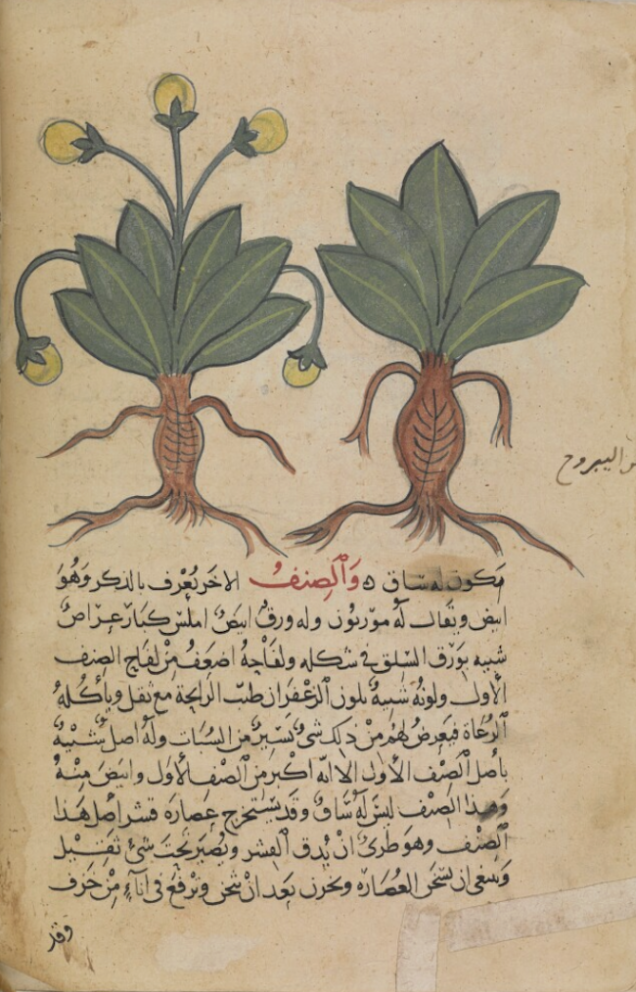 اليبروح
يكون له ساق ٥ وَالصِنفُ الاخر يُعْرف بالذكر وَهُوَ
ابيض ويقال لهُ موريون وله ورقٌ ابيضُ املسُ كبار عِراضٌ
شبيه بوَرَق السّلق في شكله ولفاحهُ اضعَف من لفاح الصنف
الأول ولونه شبيهٌ بلون الزعْفران طيّب الرايحة مع ثقل ويأكلهُ
الرُعاة فيعرضُ لهُم منْ ذلك شىٌ يَسيرٌ من السُبات ولهُ اصل شبيهٌ
باصل الصنف الأول الا انّه اكبر من الصنف الأول وابيض منهُ
وَهذا الصنف ليسَ لهُ سَاقٌ وقد يستخرج عصارة قشر اصل هَذا
الصنف وهو طرىٌ انْ يُدق القشر ويُصيّر تحتَ شىٍ ثقيل
وينبغى ان تسخن العُصارة وتخزن بَعد انْ تثخن وترفع فى اناءٍ منْ خزف
وقد